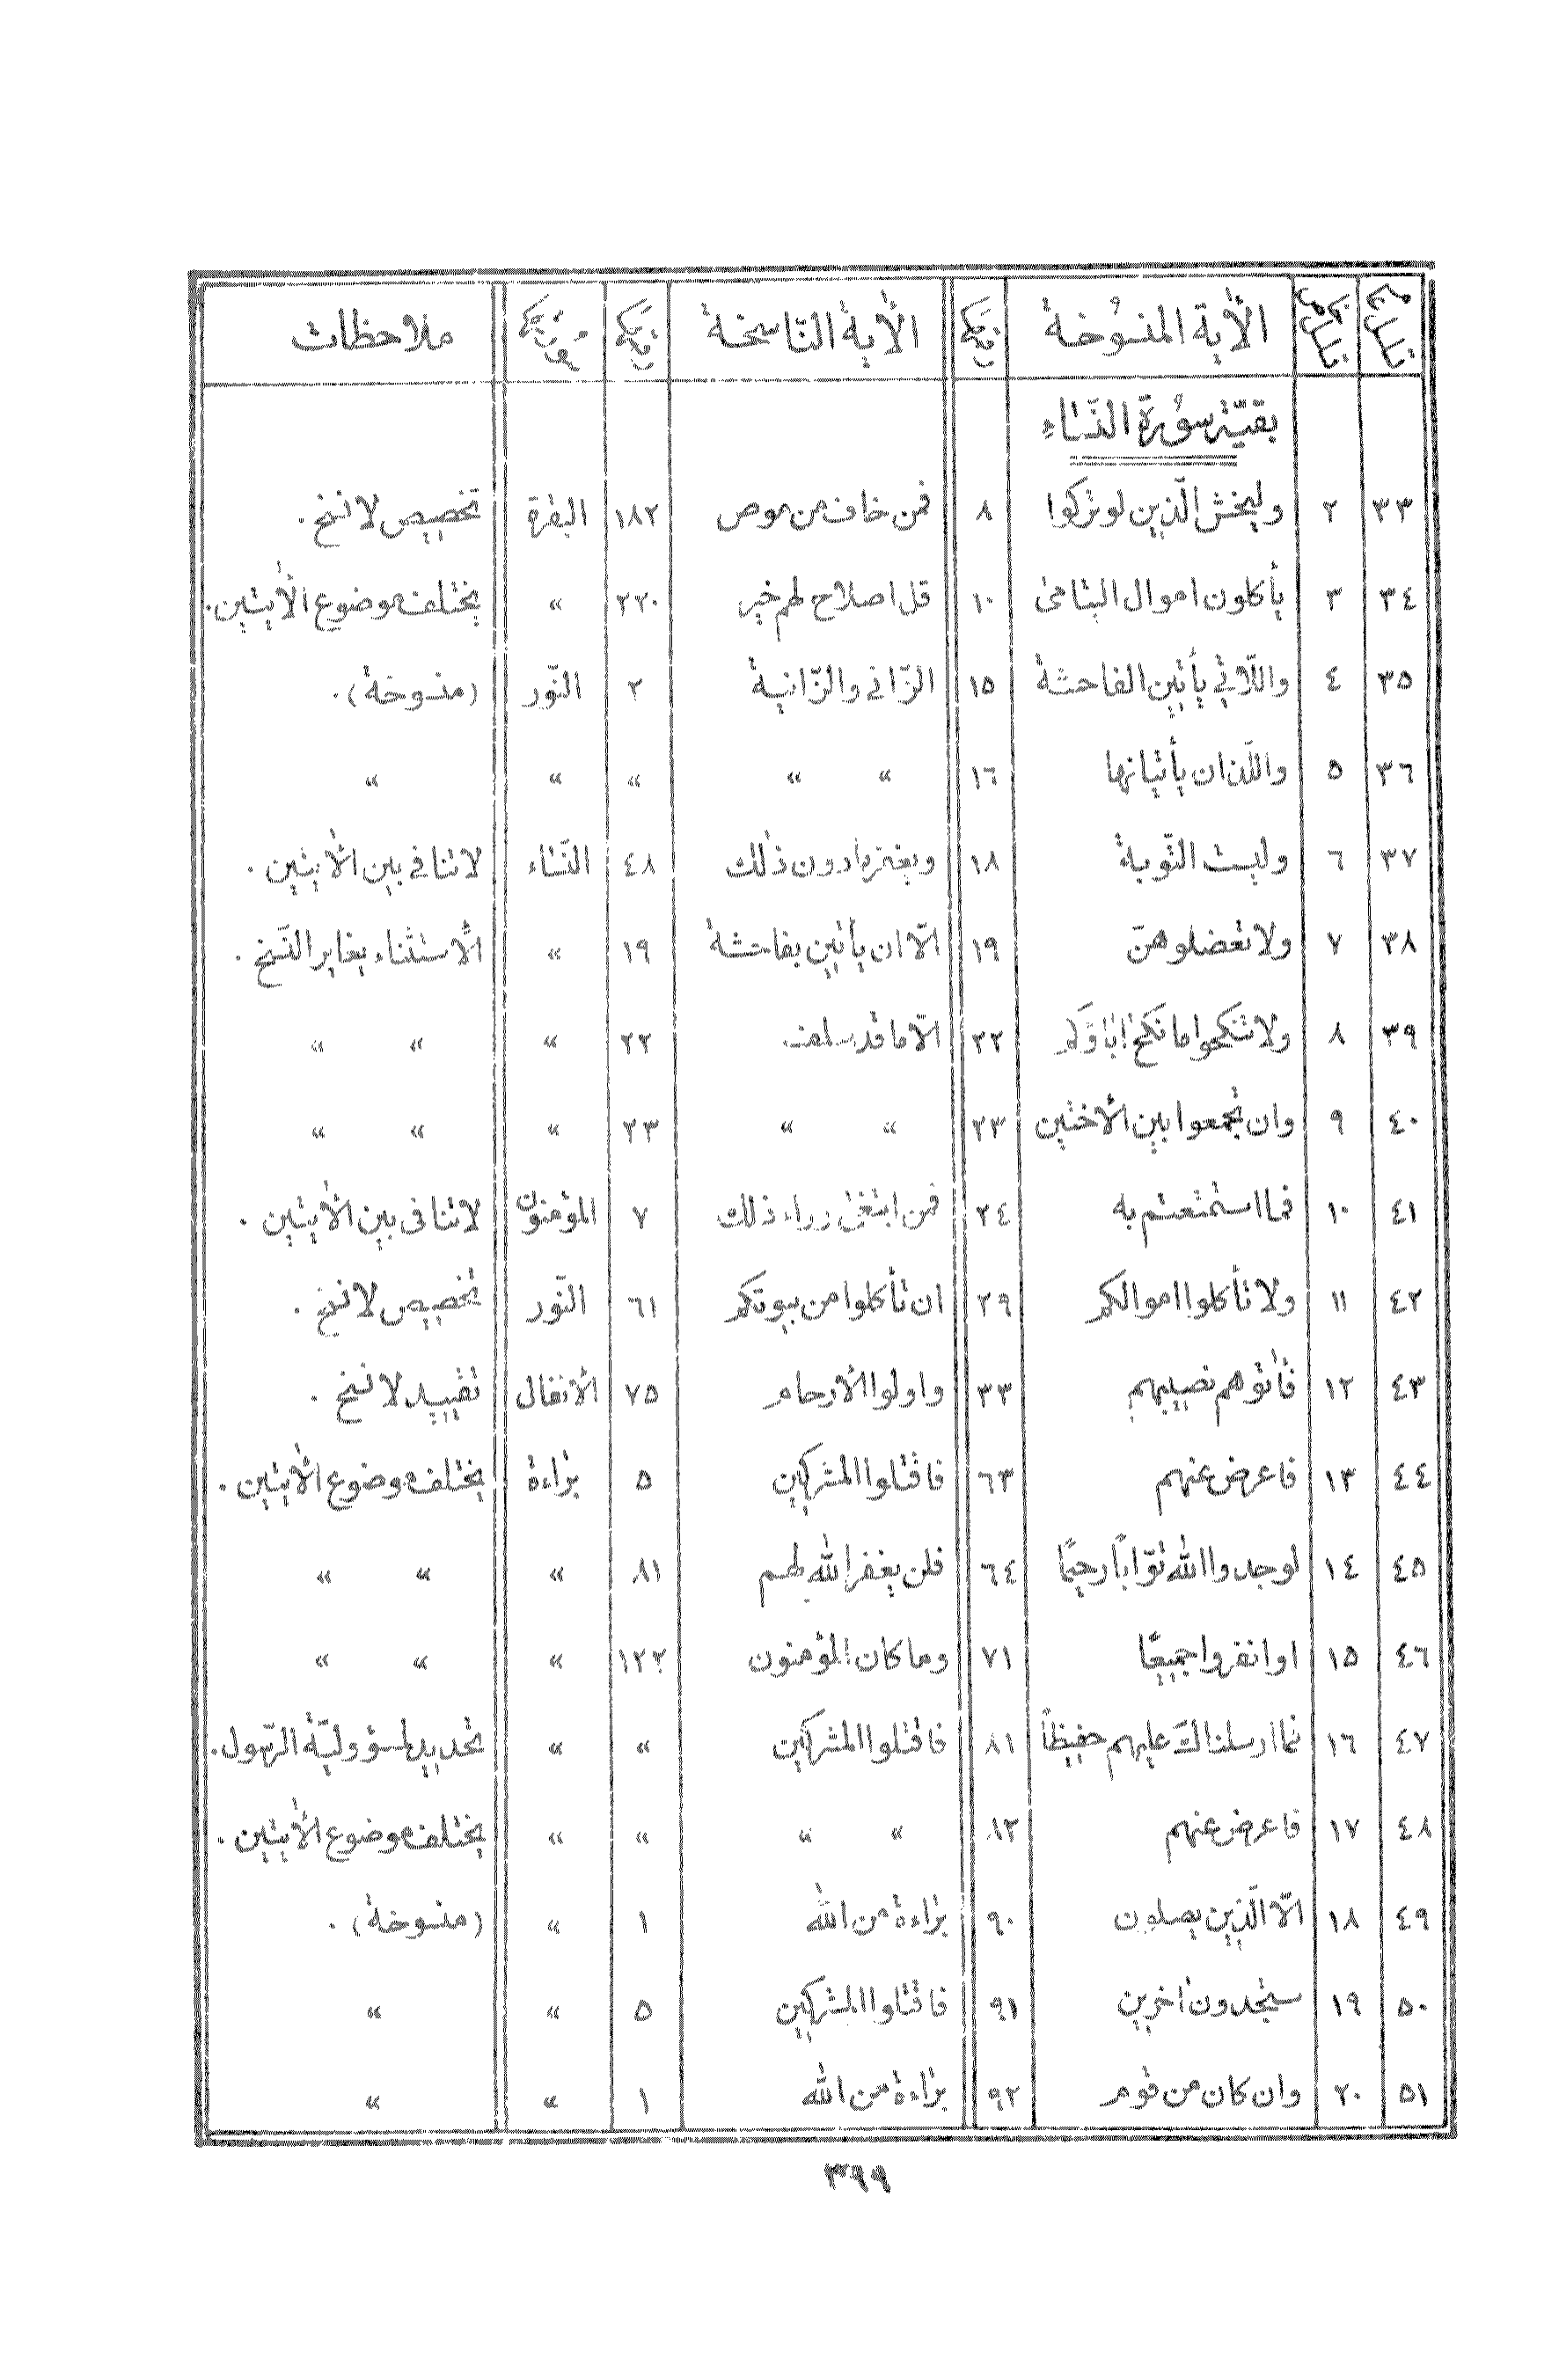 تسلسل عام تسلسل خاص الآية المنسوخة رقمها الآية الناسخة رقمها سورتها ملاحظات
بقيّة سورة النّساء
٣٣ ٢ وليخش الّذين لو تركوا ٨ فمن خاف من موص ١٨٢ البقرة تخصيص لا نسخ .
٣٤ ٣ يأكلون اموال اليتامى ١٠ قل اصلاح لهم خير ٢٢٠ " يختلف موضوع الأيتين .
٣٥ ٤ واللّاتي يأتين الفاحشة ١٥ الزّاني والزّانية ٢ النّور (منسوخة) .
٣٦ ٥ واللّذان يأتيانها ١٦ " " " " "
٣٧ ٦ وليست التّوبة ١٨ ويغفر ما دون ذلك ٤٨ النّساء لا تنافي بين الأيتين .
٣٨ ٧ ولا تعضلوهنّ ١٩ الّا ان يأتين بفاحشة ١٩ " الأستثناء يغاير النّسخ .
٣٩ ٨ ولا تنكحوا ما نكح اباؤكم ٢٢ الّا ما قد سلف ٢٢ " " "
٤٠ ٩ وان تجمعوا بين الأختين ٢٣ " " ٢٣ " " "
٤١ ١٠ فما استمتعتم به ٢٤ فمن ابتغى وراء ذلك ٧ المؤمنون لا تنافى بين الأيتين .
٤٢ ١١ ولا تأكلوا اموالكم ٢٩ ان تأكلوا من بيوتكم ٦١ النّور تخصيص لا نسخ .
٤٣ ١٢ فأتوهم نصيبهم ٣٣ واولوا الأرحام ٧٥ الأنفال تقييد لا نسخ .
٤٤ ١٣ فاعرض عنهم ٦٣ فاقتلوا المشركين ٥ براءة يختلف موضوع الأيتين .
٤٥ ١٤ لوجدوا الله توّاباً رحيمًا ٦٤ فلن يغفر الله لهم ٨١ " " "
٤٦ ١٥ اوانفروا جميعًا ٧١ وما كان المؤمنون ١٢٢ " " "
٤٧ ١٦ فما ارسلناك عليهم حفيظاً ٨١ فاقتلوا المشركين " " تحديد لمسؤوليّة الرّسول .
٤٨ ١٧ فاعرض عنهم ٨٢ " " " " يختلف موضوع الأيتين .
٤٩ ١٨ الّا الّذين يصلون ٩٠ براءة من الله ١ " (منسوخة) .
٥٠ ١٩ ستجدون أخرين ٩١ فاقتلوا المشركين ٥ " "
٥١ ٢٠ وان كان من قوم ٩٢ براءة من الله ١ " "
٣٦٩